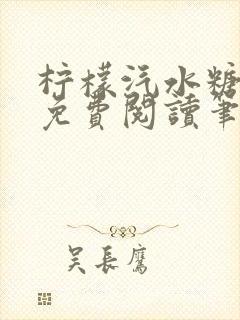 柠檬汽水糖
免費閱讀筆
吴長鷹